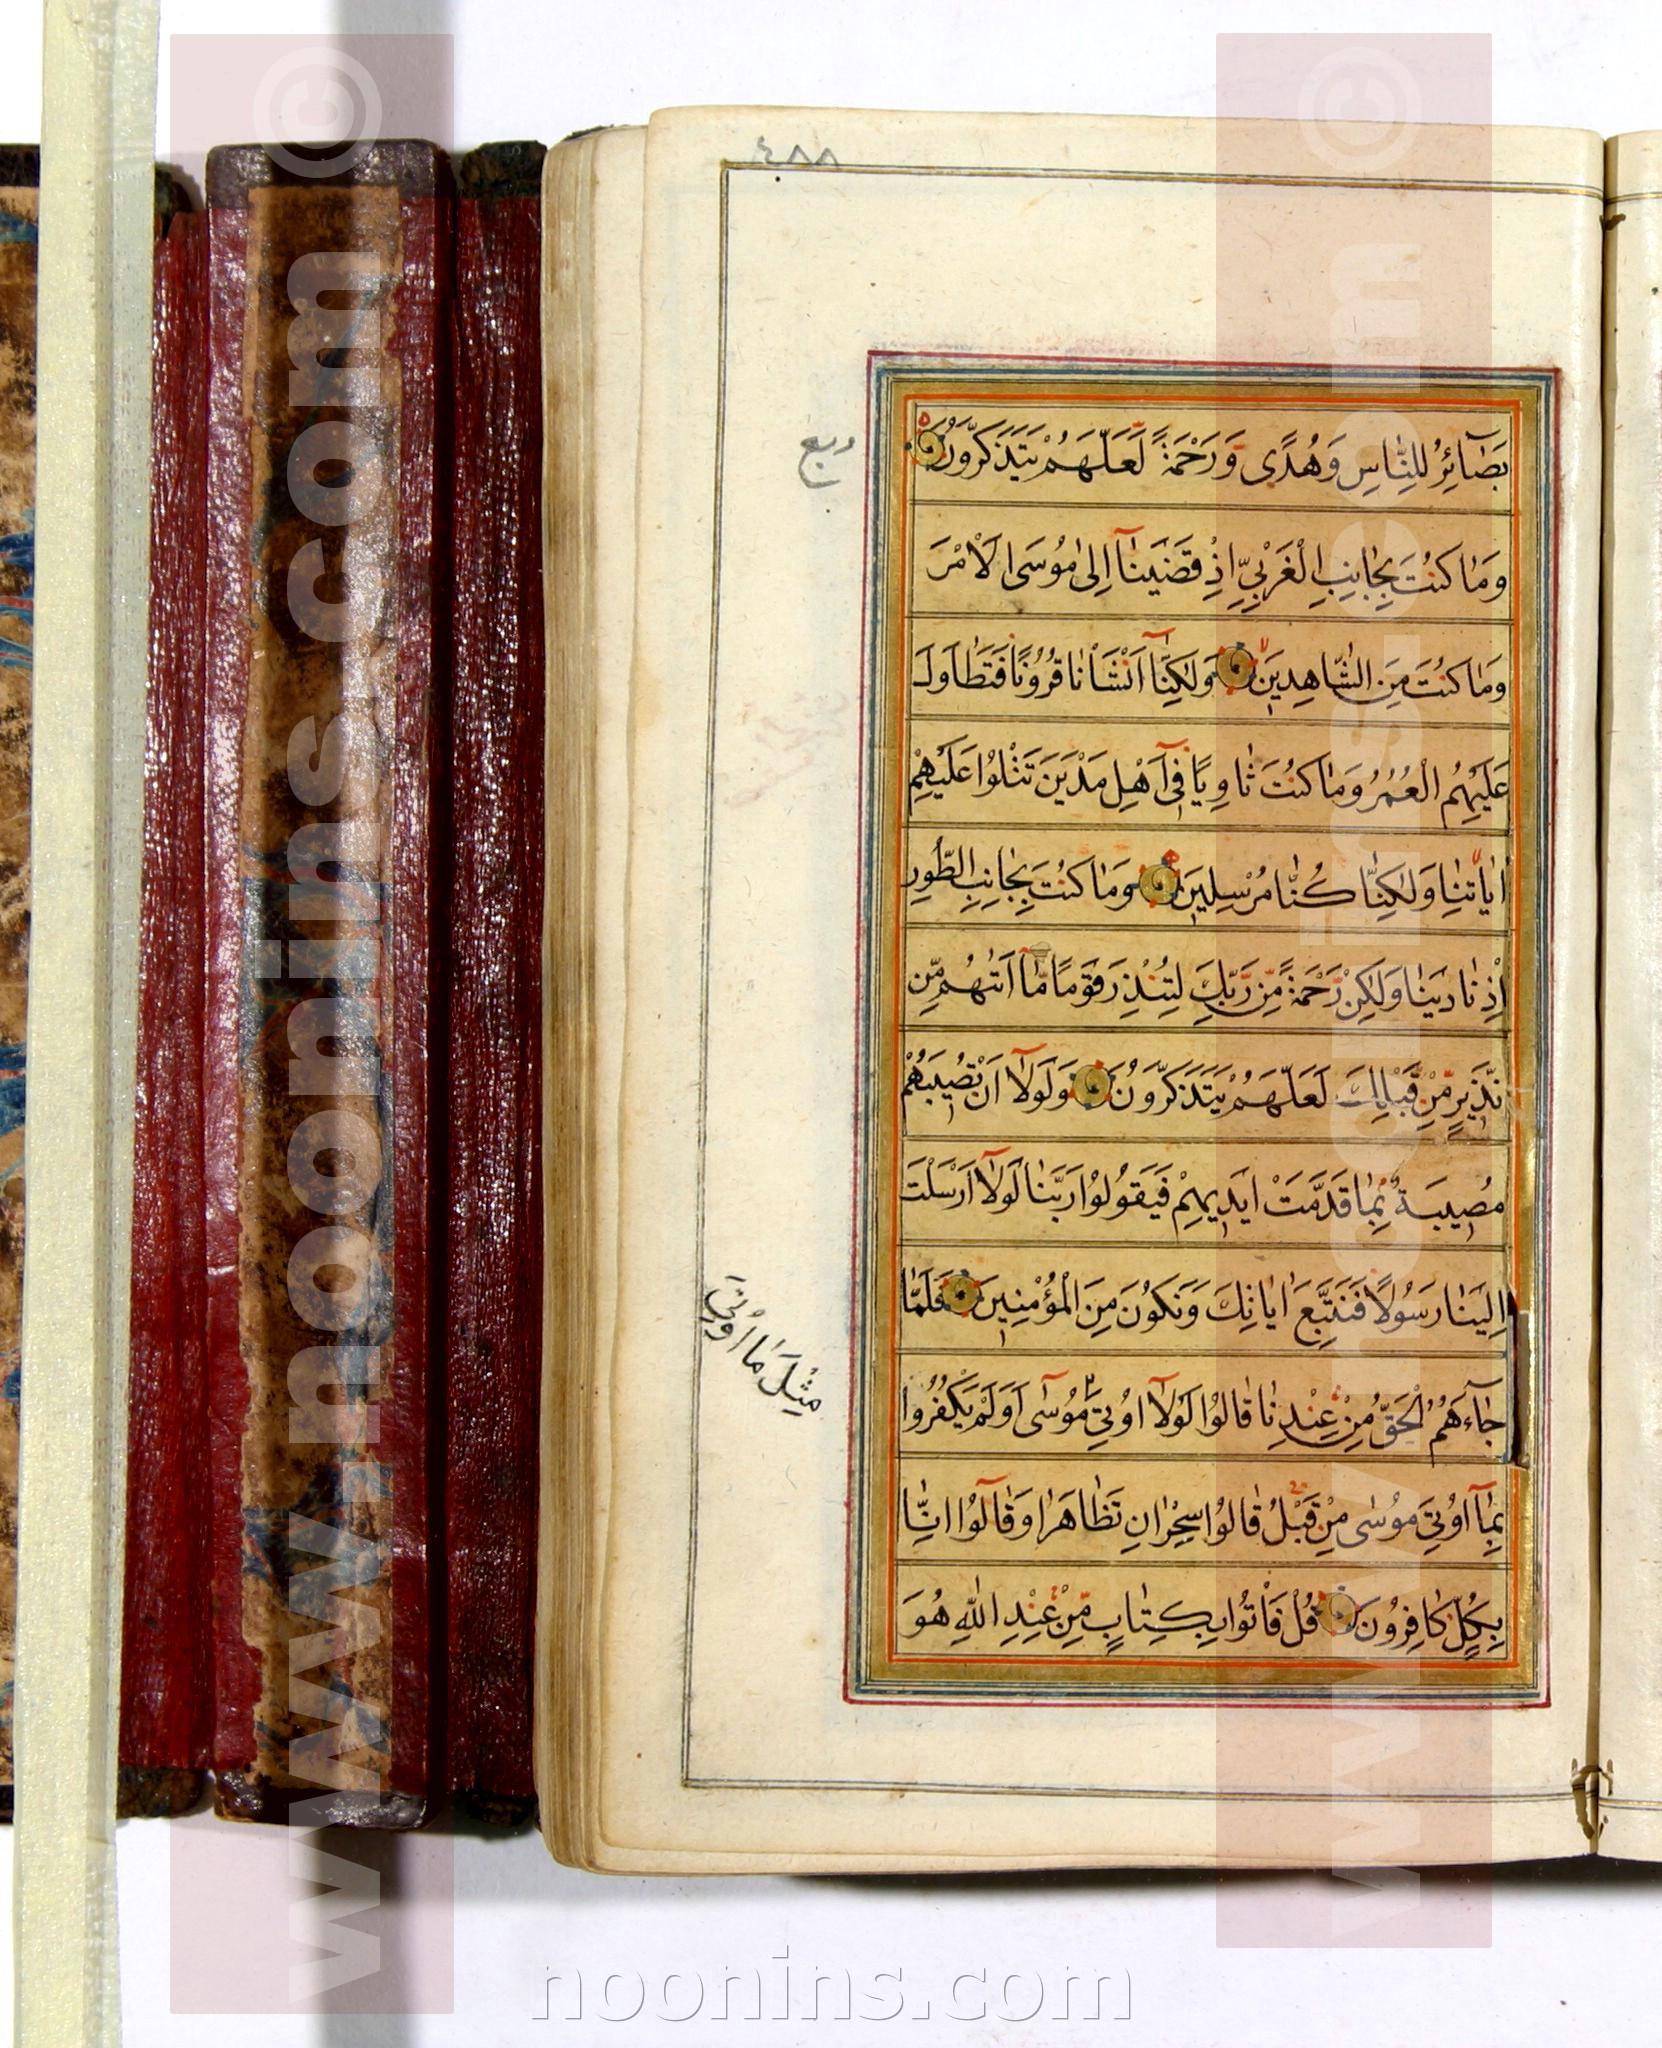 ٤٨٨
بَصَائِرَ لِلنَّاسِ وَهُدًى وَرَحْمَةً لَّعَلَّهُمْ يَتَذَكَّرُونَ
ربع
وَمَا كُنتَ بِجَانِبِ الْغَرْبِيِّ اِذْ قَضَيْنَآ اِلٰى مُوسَى الْاَمْرَ
وَمَا كُنتَ مِنَ الشَّاهِدِينَ وَلٰكِنَّآ اَنْشَاْنَا قُرُونًا فَتَطَاوَلَ
عَلَيْهِمُ الْعُمُرُ وَمَا كُنتَ ثَاوِيًا فِيٓ اَهْلِ مَدْيَنَ تَتْلُوا عَلَيْهِمْ
اٰيَاتِنَا وَلٰكِنَّا كُنَّا مُرْسِلِينَ وَمَا كُنتَ بِجَانِبِ الطُّورِ
اِذْ نَادَيْنَا وَلٰكِنْ رَّحْمَةً مِّن رَّبِّكَ لِتُنْذِرَ قَوْمًا مَّآ اَتٰهُم مِّن
نَّذِيرٍ مِّنْ قَبْلِكَ لَعَلَّهُمْ يَتَذَكَّرُونَ وَلَوْلَآ اَنْ تُصِيبَهُمْ
مُصِيبَةٌ بِمَا قَدَّمَتْ اَيْدِيهِمْ فَيَقُولُوا رَبَّنَا لَوْلَآ اَرْسَلْتَ
اِلَيْنَا رَسُولًا فَنَتَّبِعَ اٰيَاتِكَ وَنَكُونَ مِنَ الْمُؤْمِنِينَ فَلَمَّا
جَآءَهُمُ الْحَقُّ مِنْ عِنْدِنَا قَالُوا لَوْلَآ اُوتِيَ مُوسَىٓ اَوَلَمْ يَكْفُرُوا
مِثْلَ مَا اُوتِيَ
بِمَآ اُوتِيَ مُوسٰى مِنْ قَبْلُ قَالُوا سِحْرَانِ تَظَاهَرَا وَقَالُوٓا اِنَّا
بِكُلٍّ كَافِرُونَ قُلْ فَاْتُوا بِكِتَابٍ مِّنْ عِنْدِ اللّٰهِ هُوَ
www.noonins.com ©
www.noonins.com ©
noonins.com